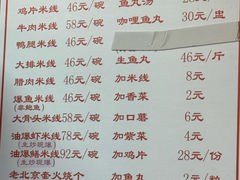 鸡片米线 46元/碗 鱼丸汤
牛肉米线 58元/碗 咖哩鱼丸 30元/
鸭腿米线 46元/碗
大排米线 46元/碗 生鱼丸 46元/斤
腊肉米线 46元/碗 加米线 8元
爆鱼米线 46元/碗 加香菜 2元
大骨头米线 58元/碗 加口蘑 6元
油爆虾米线 78元/碗 加紫菜 4元
(生炒现爆)
油爆鳝米线 92元/碗 加鸡片 28元/份
(生炒现爆)
老北京奎火烧个 加鱼丸